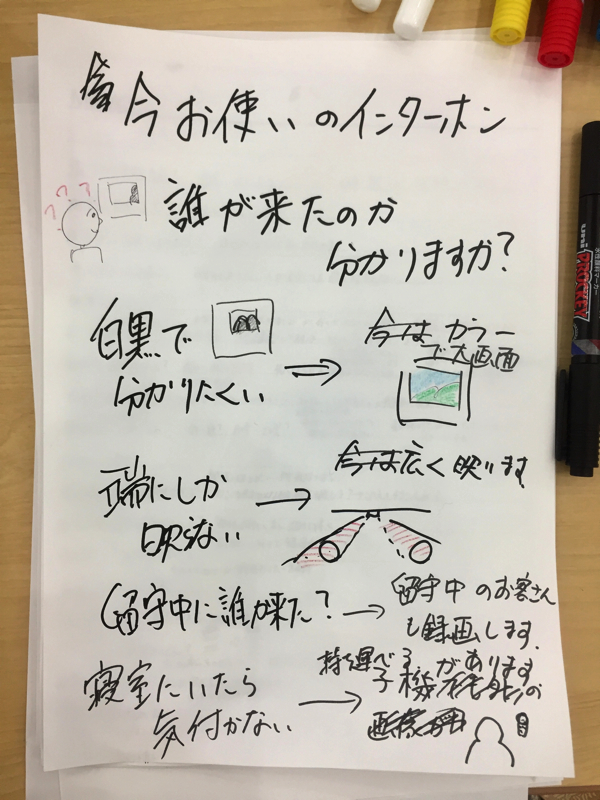 今お使いのインターホン
???
誰が来たのか
分かりますか?
白黒で
分かりにくい
今はカラー
で大画面
端にしか
映らない
今は広く映ります
留守中に誰か来た?
留守中のお客さん
も録画します.
寝室にいたら
気付かない
持ち運べる
子機があります
PROCKEY